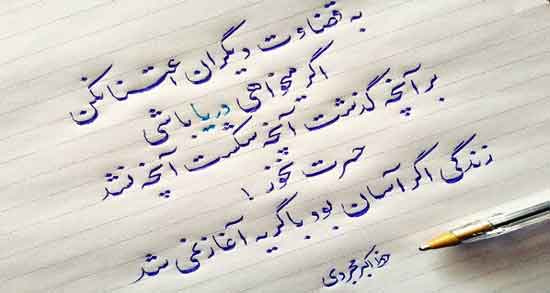 به قضاوت دیگران اعتنا نکن
اگر میخواهی دریا باشی
بر آنچه گذشت آنچه شکست آنچه نشد
حسرت نخور !
زندگی اگر آسان بود با گریه آغاز نمی شد
اکبر مجردی